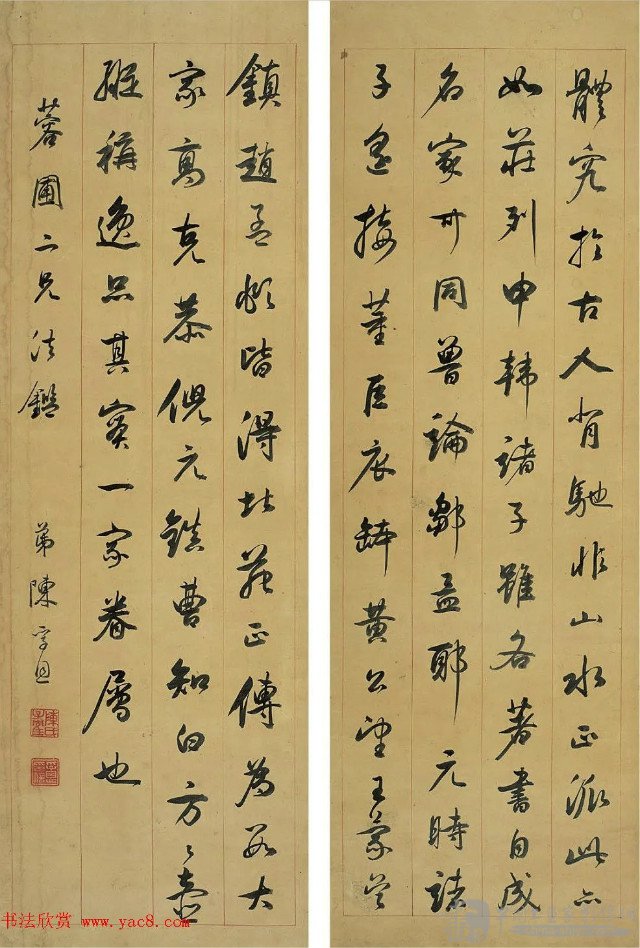 體究於古人背馳非山水正派此亦
如莊列申韓諸子雖各著書自成
名家可同魯論鄒孟耶元時諸
子遙接董巨衣鉢黃公望王蒙吳
鎮趙孟頫皆得北苑正傳為大
家高克恭倪元鎮曹知白方方壺
縱稱逸品其實一家眷屬也
蓉圃二兄法鑑
弟陳孚恩
书法欣赏 www.yac8.com